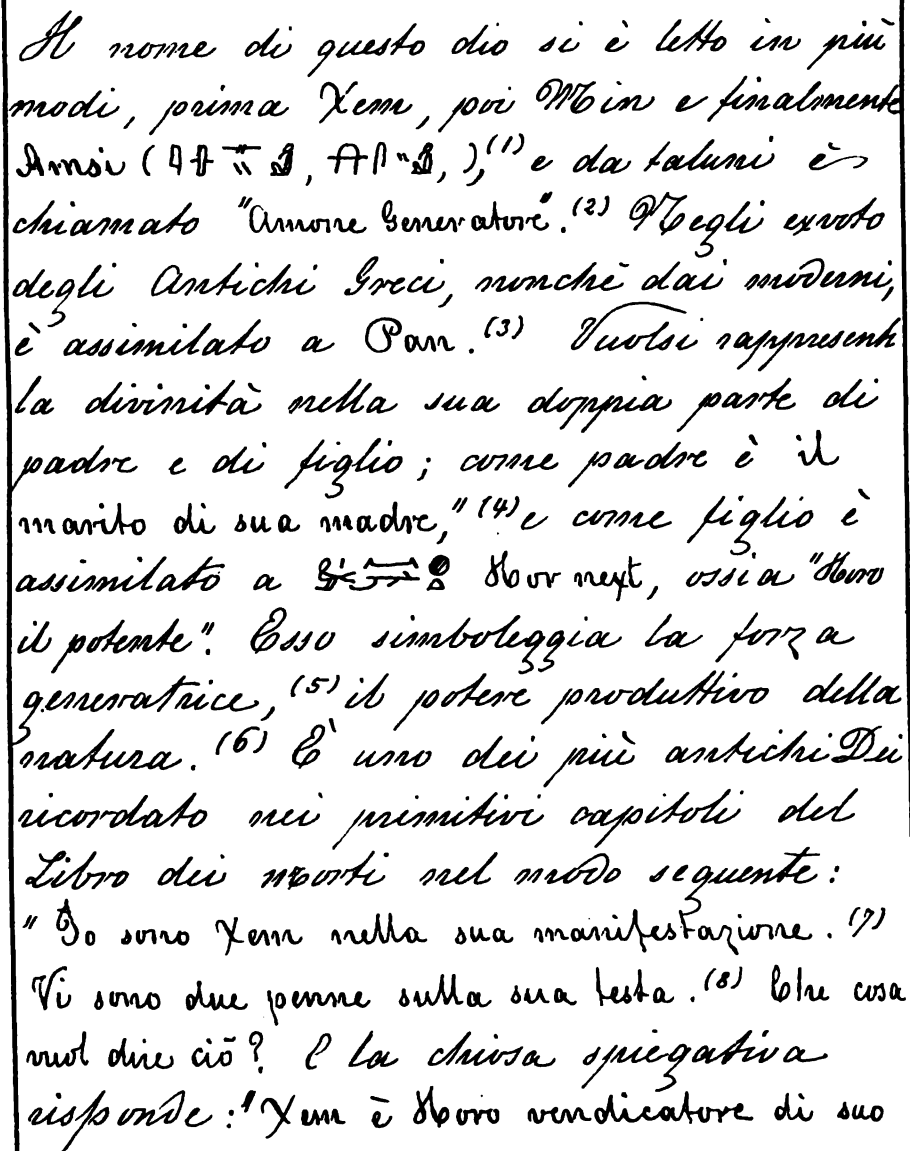 Il nome di questo dio si è letto in più
modi, prima Xem, poi Min e finalmente
Amsi ( , ),⁽¹⁾ e da taluni è
chiamato "Amone Generatore".⁽²⁾ Negli exvoto
degli Antichi Greci, nonchè dai moderni,
è assimilato a Pan.⁽³⁾ Vuolsi rappresent
la divinità nella sua doppia parte di
padre e di figlio; come padre è il
marito di sua madre,"⁽⁴⁾ e come figlio è
assimilato a Hor next, ossia "Horo
il potente". Esso simboleggia la forza
generatrice,⁽⁵⁾ il potere produttivo della
natura.⁽⁶⁾ È uno dei più antichi Dei
ricordato nei primitivi capitoli del
Libro dei morti nel modo seguente:
"Io sono Xem nella sua manifestazione.⁽⁷⁾
Vi sono due penne sulla sua testa.⁽⁸⁾ Che cosa
vuol dire ciò? E la chiosa spiegativa
risponde: "Xem è Horo vendicatore di suo